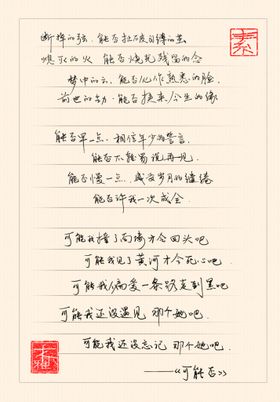 断掉的弦 能否拉成自缚的茧
熄灭的火 能否烧光残留的念
梦中的云 能否化作熟悉的脸
前世的劫 能否换来今生的缘
能否早一点 相信年少的誓言
能否不轻易说再见
能否慢一点 感受岁月的缠绵
能否许我一次成全
可能我撞了南墙才会回头吧
可能我见了黄河才会死心吧
可能我偏爱一条路走到黑吧
可能我还没遇见 那个她吧
可能我还没忘记 那个她吧
——《可能否》